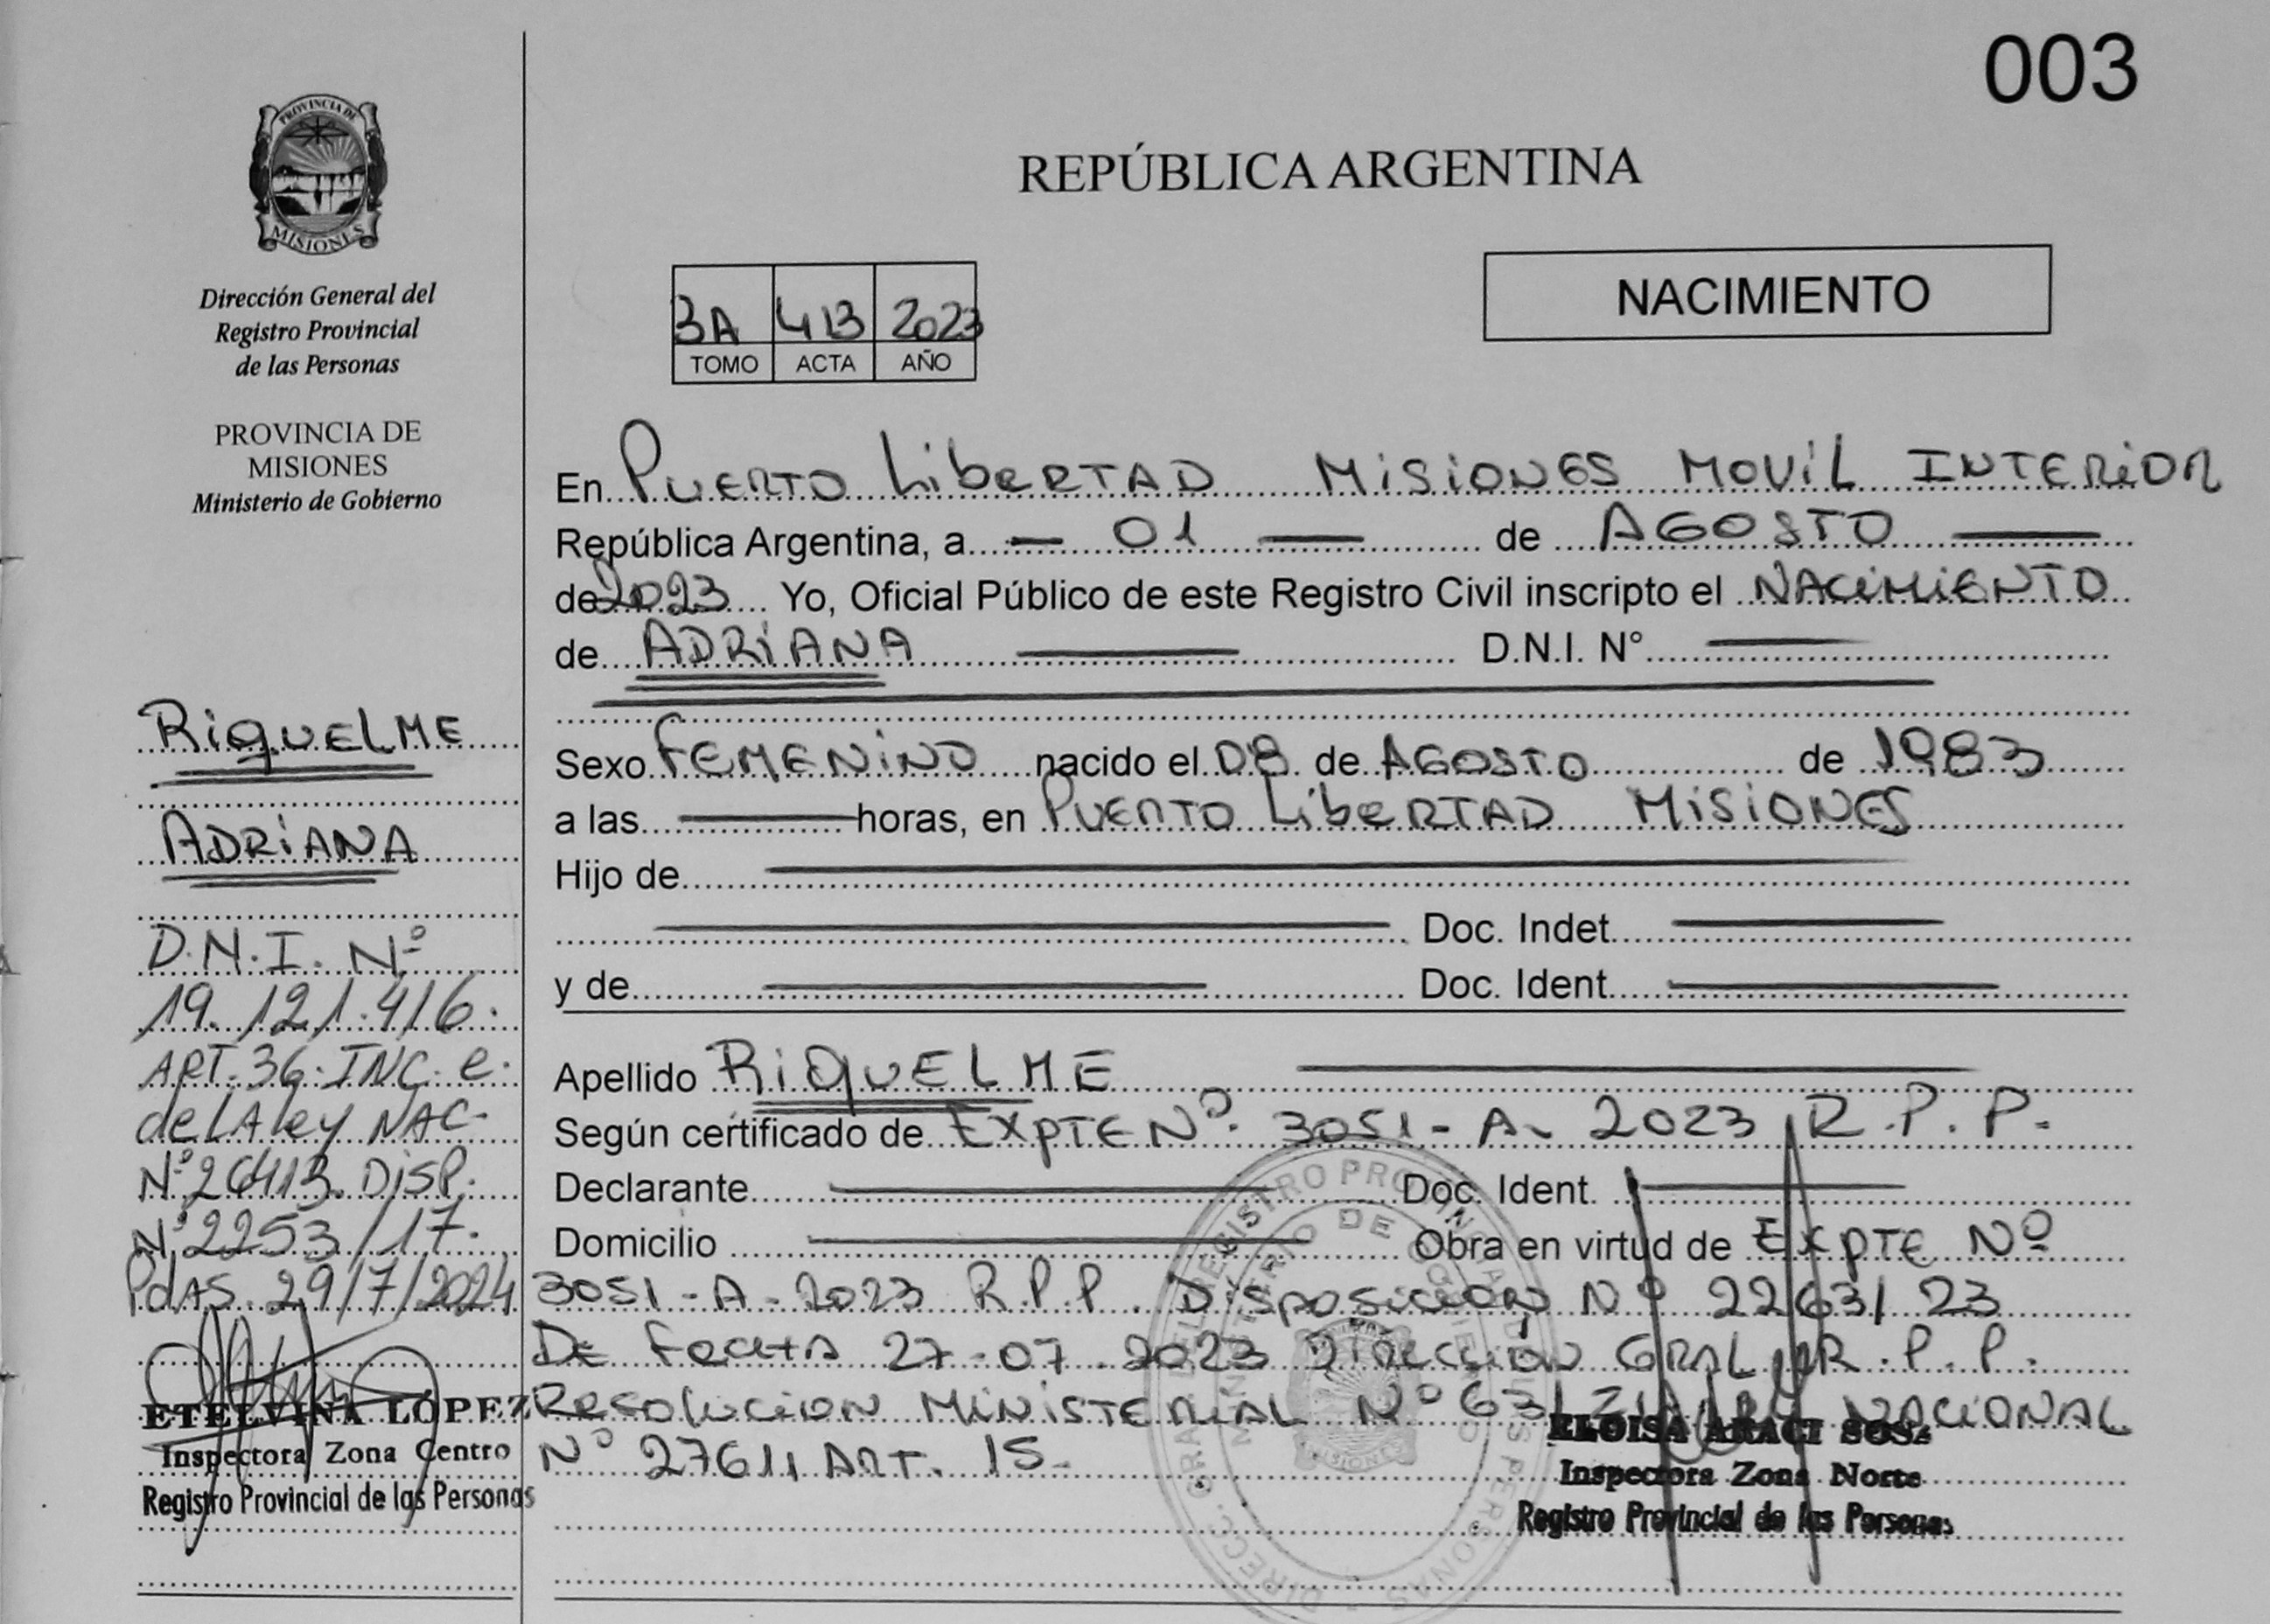 003
PROVINCIA DE
MISIONES
Dirección General del
Registro Provincial
de las Personas
PROVINCIA DE
MISIONES
Ministerio de Gobierno
RiquELME
ADRiANA
D.N.I. Nº
19.121.416.
ART. 36. INC. e.
de LA ley NAC.
Nº 26413. DISP.
Nº 2253/17.
PdAS. 29/7/2024
ETELVINA LOPEZ
Inspectora Zona Centro
Registro Provincial de las Personas
REPÚBLICA ARGENTINA
3A 413 2023
TOMO ACTA AÑO
NACIMIENTO
En PUERTO LibERTAD MiSiONES MOViL INTERiOR
República Argentina, a 01 de AGOSTO
de 2023 Yo, Oficial Público de este Registro Civil inscripto el NACiMiENTO
de ADRiANA D.N.I. N°
Sexo FEMENiNO nacido el 08 de AGOSTO de 1983
a las horas, en PUERTO LibERTAD MiSiONES
Hijo de
Doc. Indet.
y de Doc. Ident.
Apellido RiquELME
Según certificado de EXPTE Nº 3051-A-2023 R.P.P.
Declarante Doc. Ident.
Domicilio Obra en virtud de EXPTE Nº
3051-A-2023 R.P.P. Disposicion Nº 2263/23
DE FECHA 27-07-2023 DiRECCiON GRAL R.P.P.
RESOLUCiON MiNiSTERiAL Nº NACiONAL
Nº 27611 ART. 15.
ELOISA ARACI SOSA
Inspectora Zona Norte
Registro Provincial de las Personas